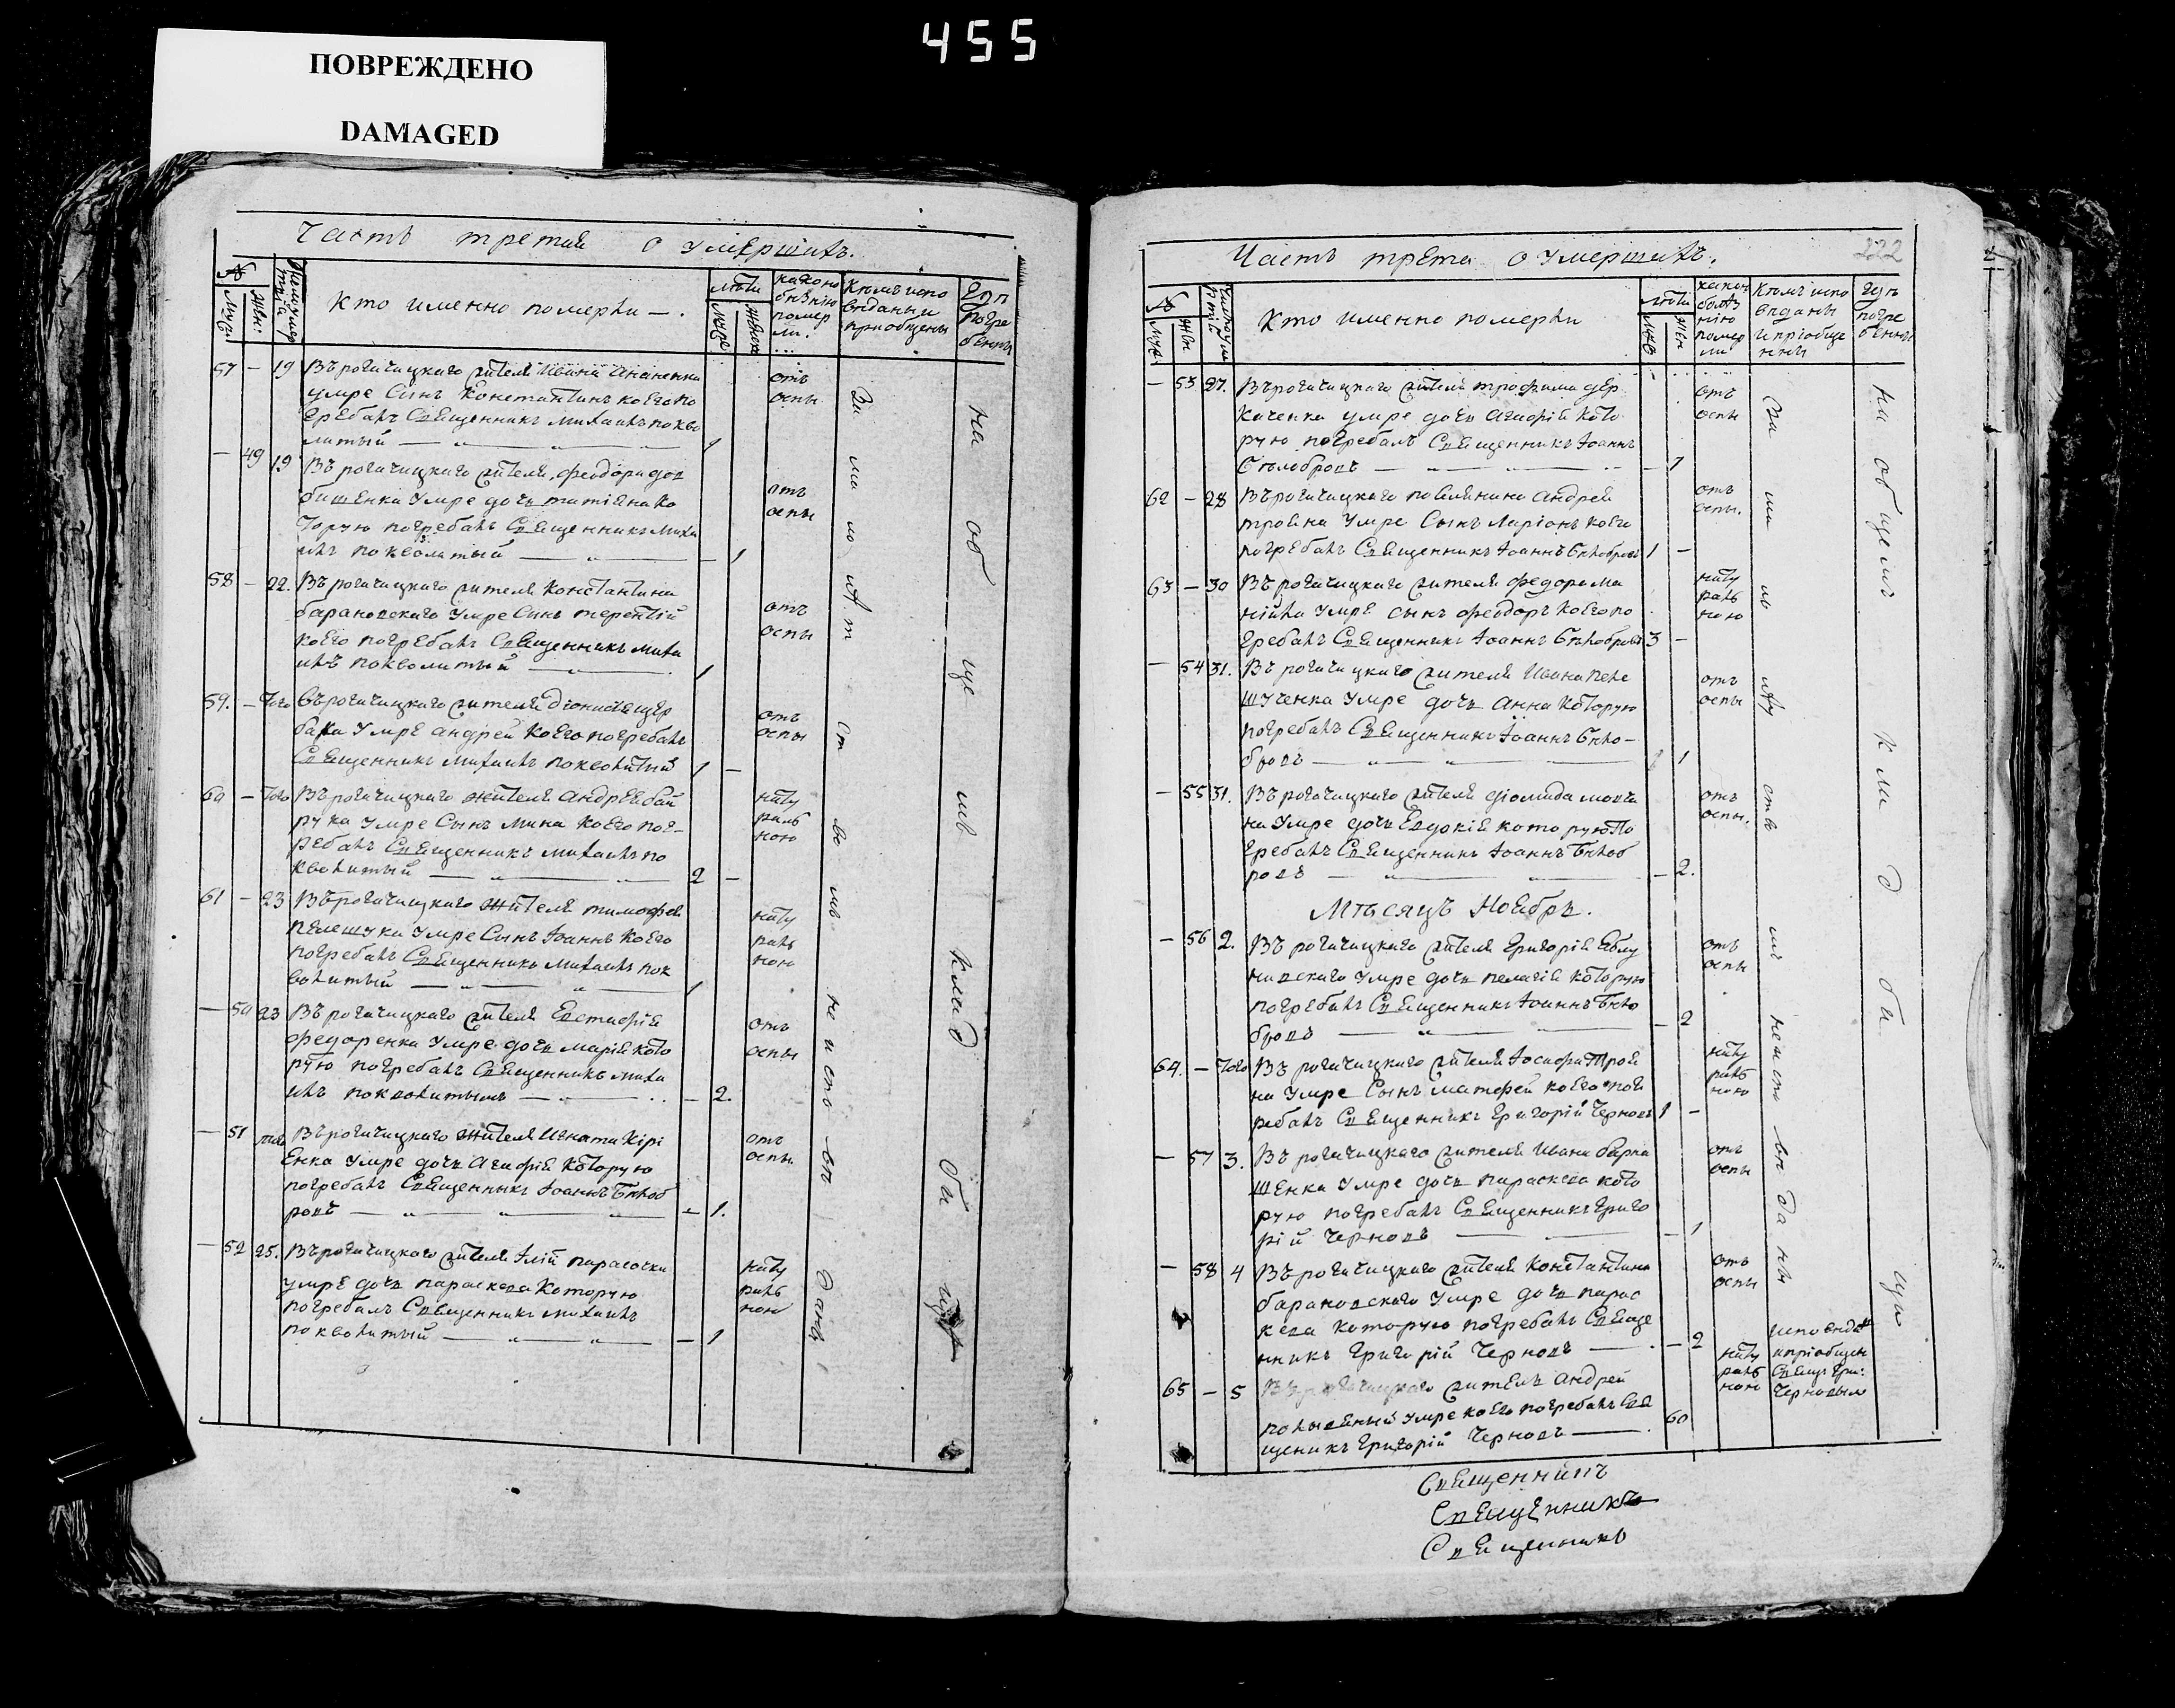 455
ПОВРЕЖДЕНО
DAMAGED
Часть третия о умершихъ.
№
Муж:
Жен:
кто именно померли —.
лѣта
Муж:
Женс:
какою
болѣзнію
помер
ли.
Кѣмъ испо
виданы и
приобщены
Гдѣ
погре
бенны
57 — 19 Въ рогачицкаго жителя Ивана Ананенка
умре Сынъ Константинъ коего по
гребалъ Священникъ михаилъ покво
литый — 1
отъ
оспы
— 49 19 Въ рогачицкаго жителя феодора дов
бишенка умре дочь татіяна ко
торую погребалъ Священникъ миха
илъ поквалитый — 1
отъ
оспы
58 — 22. Въ рогачицкаго жителя Константина
барановскаго умре Сынъ терентій
коего погребалъ Священникъ миха
илъ покволитый 1
отъ
оспы
59. — Того Въ рогачицкаго жителя діонисія щер
бака умре андрей коего погребалъ
Священникъ михаилъ покволитый 1 —
отъ
оспы
60 — Того Въ рогачицкаго жителя андрея бай
рука умре Сынъ мина коего пог-
ребалъ Священникъ михаилъ по
кволитый 2 —
нату
раль
ною
61 — 23 Въ рогачицкаго жителя тимофея
пелешука умре Сынъ Іоаннъ коего
погребалъ Священникъ михаилъ пок
волитый 1
нату
раль
ною
— 50 23 Въ рогачицкаго жителя Евстафія
федоренка умре дочь марія кото
рую погребалъ Священникъ миха
илъ покволитымъ — 2.
отъ
оспы
— 51 того Въ рогачицкаго жителя Игната Кірі
Енка умре дочь агафія которую
погребалъ Священныкъ Іоаннъ Бѣлоб
родъ — 1.
отъ
оспы
— 52 25. Въ рогачицкаго жителя Іліи парасочки
умре дочь параскева Которую
погребалъ Священникъ михаилъ
покволитый — 1
нату
раль
ною
За малолѣтством не исповѣданы
На общемъ кладбищѣ
222
Часть трета о умершихъ.
№
Муж
Жен
Кто именно померли
лѣта
Муж
Жен
какою
болѣз
нію
помер
ли
Кѣмъ испо
виданы
и пріобще
нны
Гдѣ
погре
бенны
— 53 27. Въ рогачицкаго жителя трофима дер
каченка умре дочь агафія кото
рую погребалъ Священникъ Іоаннъ
бѣлобродъ — 1
отъ
оспы
62 — 28 Въ рогачицкаго поселянина андрея
трояна умре Сынъ Ларіонъ коего
погребалъ Священникъ Іоаннъ бѣлобродъ 1 —
отъ
оспы.
63 — 30 Въ рогачицкаго жителя федора ма
нійка умре сынъ феодоръ коего по
гребалъ Священникъ Іоаннъ бѣлобродъ 3 —
нату
раль
ною
— 54 31. Въ рогачицкаго жителя Ивана пеле
шученка умре дочь анна Которую
погребалъ Священникъ Іоаннъ бѣло-
бродъ 1
отъ
оспы
— 55 31. Въ рогачицкаго жителя діомида мовча
на умре дочь Евдокія которую по
гребалъ Священникъ Іоаннъ Бѣлоб
родъ — 2.
отъ
оспы.
Мѣсяцъ Ноябрь.
— 56 2. Въ рогачицкаго жителя григорія яблу
новскаго умре дочь пелагія которую
погребалъ Священникъ Іоаннъ Бѣло
бродъ — 2
отъ
оспы
64. — Того Въ рогачицкаго жителя Іосифа троя
на умре Сынъ матфей коего пог
ребалъ Священникъ григорій Черновъ 1 —
нату
раль
ною
— 57 3. Въ рогачицкаго жителя Ивана барна
шЕнка умре дочь параскева кото
рую погребалъ Священникъ григо
рій Черновъ — 1
отъ
оспы
— 58 4 Въ рогачицкаго жителя Константина
барановскаго умре дочь парас
кева которую погребалъ Свяще
нникъ григорій Черновъ — 2
отъ
оспы
65 — 5 Въ рогачицкаго житель андрей
умре коего погребалъ Свя
щеникъ григорій Черновъ 60
нату
раль
ною
исповѣдан
и пріобщен
Свящ: Гри:
Черновым
За малолѣтствомъ неисповѣданы
на общемъ кладбища
Священникъ
Священникъ
Священникъ